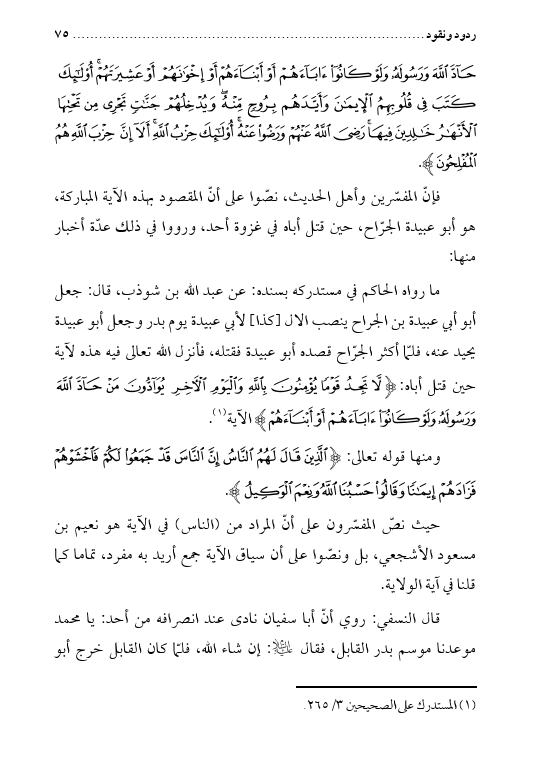 ردود ونقود ................................................................................ ٧٥
حَآدَّ ٱللَّهَ وَرَسُولَهُۥ وَلَوۡ كَانُوٓاْ ءَابَآءَهُمۡ أَوۡ أَبۡنَآءَهُمۡ أَوۡ إِخۡوَٰنَهُمۡ أَوۡ عَشِيرَتَهُمۡۚ أُوْلَٰٓئِكَ
كَتَبَ فِي قُلُوبِهِمُ ٱلۡإِيمَٰنَ وَأَيَّدَهُم بِرُوحٖ مِّنۡهُۖ وَيُدۡخِلُهُمۡ جَنَّٰتٖ تَجۡرِي مِن تَحۡتِهَا
ٱلۡأَنۡهَٰرُ خَٰلِدِينَ فِيهَاۚ رَضِيَ ٱللَّهُ عَنۡهُمۡ وَرَضُواْ عَنۡهُۚ أُوْلَٰٓئِكَ حِزۡبُ ٱللَّهِۚ أَلَآ إِنَّ حِزۡبَ ٱللَّهِ هُمُ
ٱلۡمُفۡلِحُونَ﴾.
فإنّ المفسّرين وأهل الحديث، نصّوا على أنّ المقصود بهذه الآية المباركة،
هو أبو عبيدة الجرّاح، حين قتل أباه في غزوة أحد، ورووا في ذلك عدّة أخبار
منها:
ما رواه الحاكم في مستدركه بسنده: عن عبد الله بن شوذب، قال: جعل
أبو أبي عبيدة بن الجراح ينصب الال [كذا] لأبي عبيدة يوم بدر وجعل أبو عبيدة
يحيد عنه، فلمّا أكثر الجرّاح قصده أبو عبيدة فقتله، فأنزل الله تعالى فيه هذه لآية
حين قتل أباه: ﴿لَّا تَجِدُ قَوۡمٗا يُؤۡمِنُونَ بِٱللَّهِ وَٱلۡيَوۡمِ ٱلۡأٓخِرِ يُوَآدُّونَ مَنۡ حَآدَّ ٱللَّهَ
وَرَسُولَهُۥ وَلَوۡ كَانُوٓاْ ءَابَآءَهُمۡ أَوۡ أَبۡنَآءَهُمۡ﴾ الآية(١).
ومنها قوله تعالى: ﴿ٱلَّذِينَ قَالَ لَهُمُ ٱلنَّاسُ إِنَّ ٱلنَّاسَ قَدۡ جَمَعُواْ لَكُمۡ فَٱخۡشَوۡهُمۡ
فَزَادَهُمۡ إِيمَٰنٗا وَقَالُواْ حَسۡبُنَا ٱللَّهُ وَنِعۡمَ ٱلۡوَكِيلُ﴾.
حيث نصّ المفسّرون على أنّ المراد من (الناس) في الآية هو نعيم بن
مسعود الأشجعي، بل ونصّوا على أن سياق الآية جمع أريد به مفرد، تماما كما
قلنا في آية الولاية.
قال النسفي: روي أنّ أبا سفيان نادى عند انصرافه من أحد: يا محمد
موعدنا موسم بدر القابل، فقال ﷺ: إن شاء الله، فلمّا كان القابل خرج أبو
(١) المستدرك على الصحيحين ٣/ ٢٦٥.